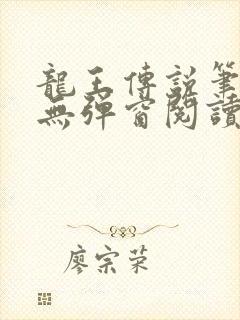 龍王傳說筆
無彈窗閱讀
廖宗榮